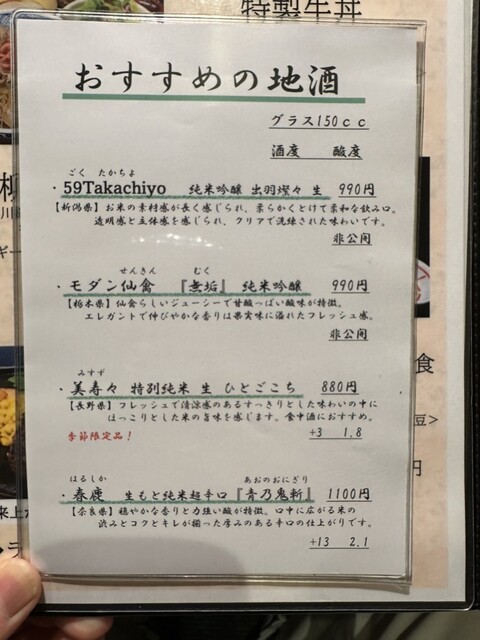 特製牛丼
おすすめの地酒
グラス150cc
酒度 酸度
ごく たかちよ
・59Takachiyo 純米吟醸 出羽燦々 生 990円
【新潟県】お米の素材感が長く感じられ、柔らかくとけて柔和な飲み口。
透明感と立体感を感じられ、クリアで洗練された味わいです。
非公開
せんきん むく
・モダン仙禽 『無垢』 純米吟醸 990円
【栃木県】仙禽らしいジューシーで甘酸っぱい酸味が特徴。
エレガントで伸びやかな香りは果実味に溢れたフレッシュ感。
非公開
みすず
・美寿々 特別純米 生 ひとごこち 880円
【長野県】フレッシュで清涼感のあるすっきりとした味わいの中に
ほっこりとした米の旨味を感じます。食中酒におすすめ。
季節限定品！ +3 1.8
はるしか あおのおにぎり
・春鹿 生もと純米超辛口『青乃鬼斬』 1100円
【奈良県】穏やかな香りと力強い酸が特徴。口中に広がる米の
渋みとコクとキレが揃った厚みのある辛口の仕上がりです。
+13 2.1
食
豆>
円